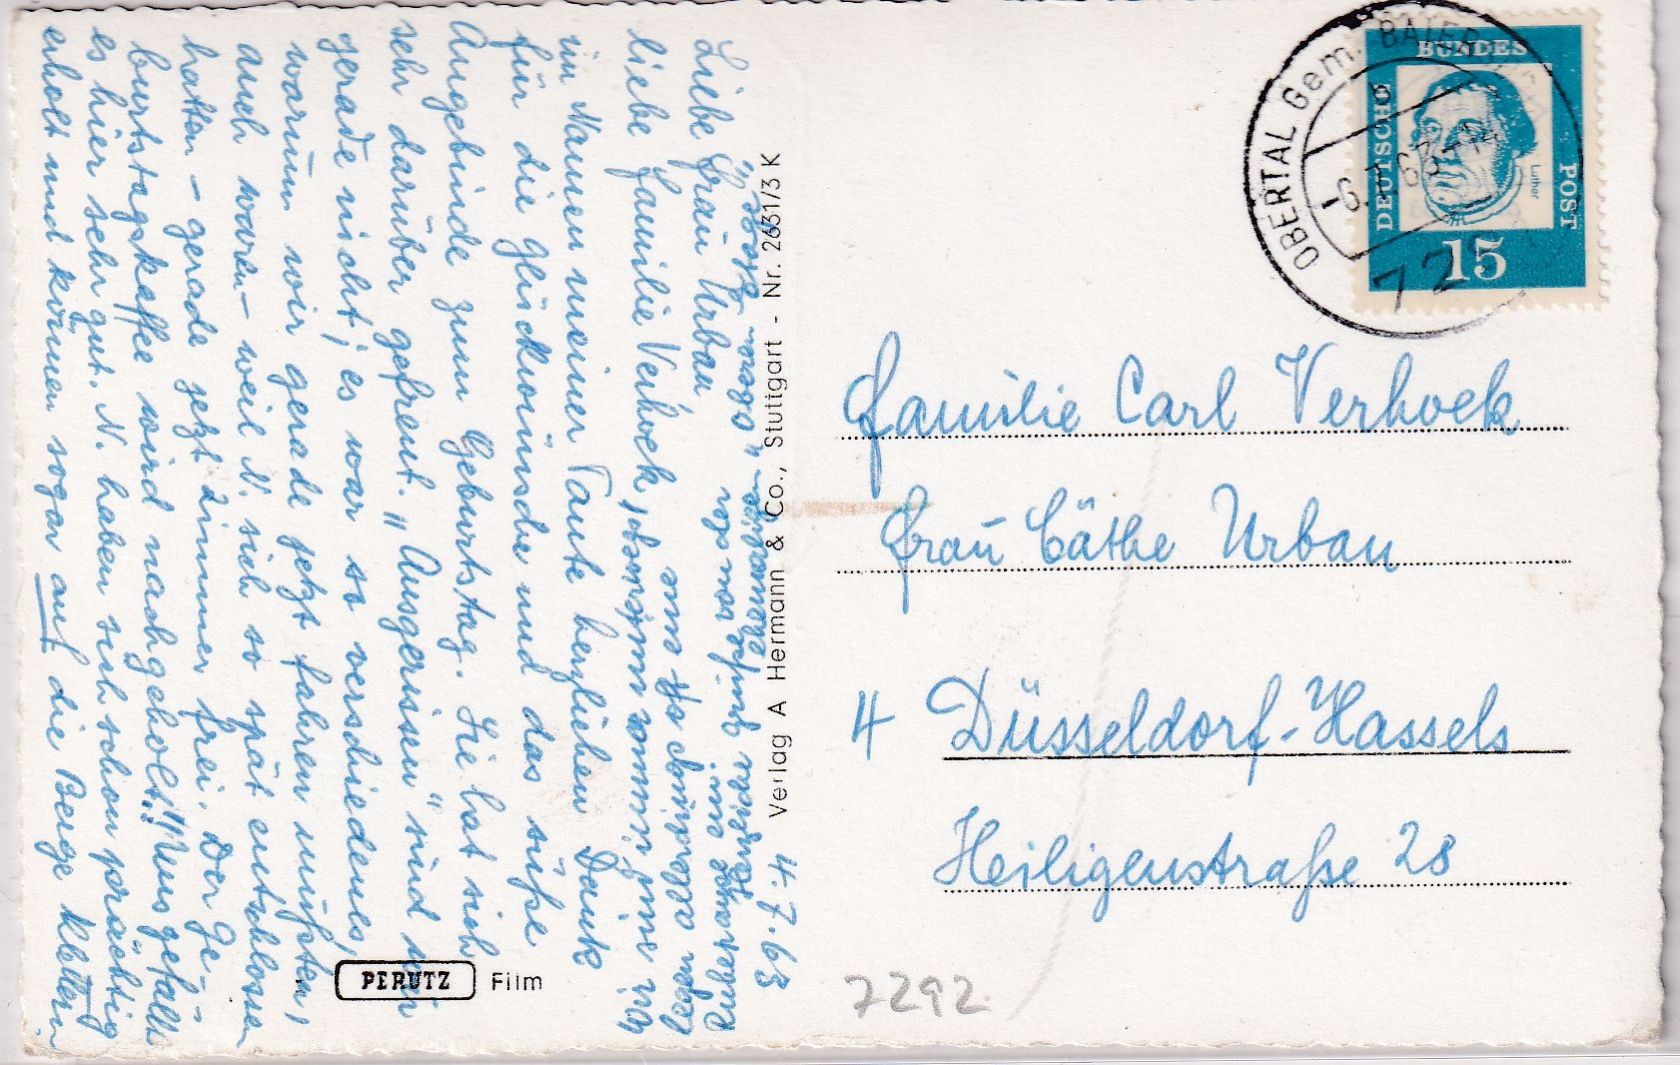 4.7.63
Liebe Frau Urban
liebe Familie Verhoek,
im Namen meiner Tante herzlichen Dank
für die Glückwünsche und das süße
Angebinde zum Geburtstag. Sie hat sich
sehr darüber gefreut. "Ausgerissen" sind wir
gerade nicht, es war so verschiedenes,
warum wir gerade jetzt fahren mußten,
auch waren - weil N. sich so spät entschlossen
hatten - gerade jetzt Zimmer frei. Der Ge-
burtstagskaffee wird nachgeholt! Uns gefällt
es hier sehr gut. N. haben sich schon prächtig
erholt und können sogar auf die Berge klettern
Verlag A Hermann & Co., Stuttgart - Nr. 2631/3 K
PERUTZ Film
OBERTAL Gem. BAIERSBRONN
-6.7.63-14
72
DEUTSCHE BUNDESPOST
Luther
15
Familie Carl Verhoek
Frau Cäthe Urban
4 Düsseldorf-Hassels
Heiligenstraße 28
7292